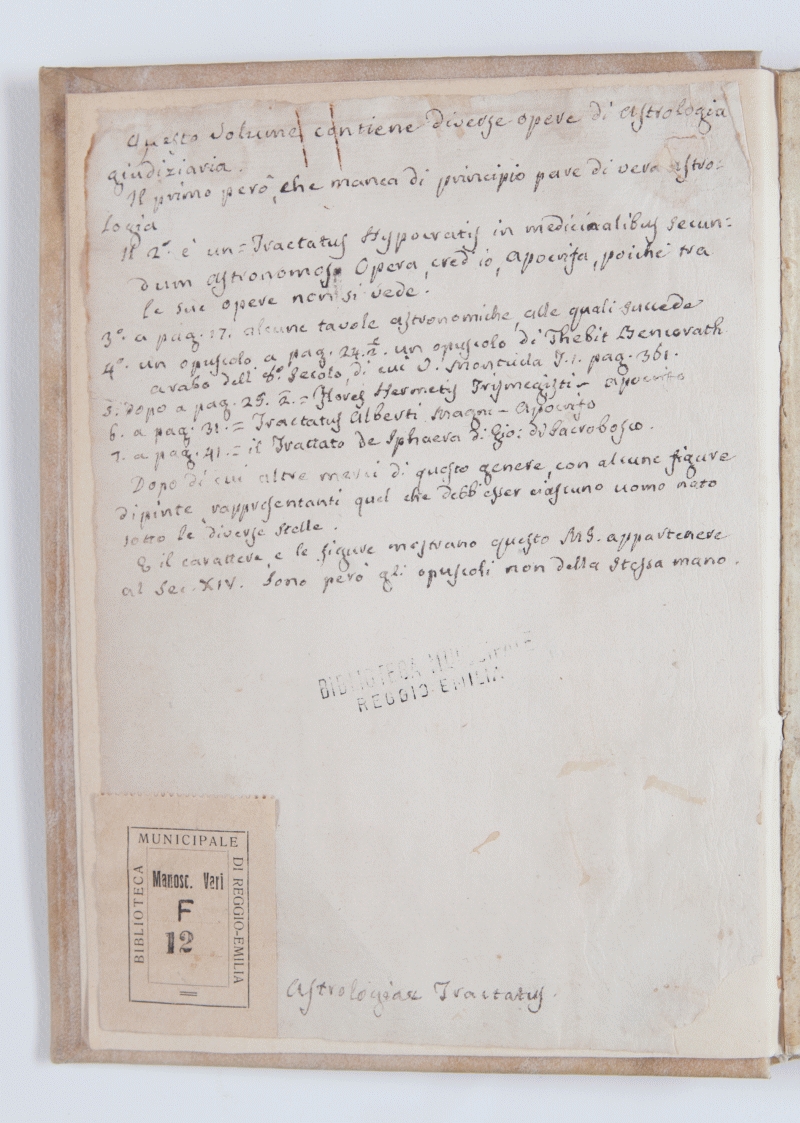 Questo Volume contiene diverse opere di Astrologia
giudiziaria.
Il primo però, che manca di principio pare di vera Astro:
logia
Il 2º. è un = Tractatus Hypocratis in medicinalibus secun:
dum Astronomos Opera, cred'io, Apocrifa, poichè tra
le sue opere non si vede.
3º. a pag. 17. alcune tavole astronomiche, alle quali succede
4º. un opuscolo a pag. 24. un opuscolo di Thebit Bencorath
arabo dell' 8º. Secolo, di cui V. Montucla T. 1. pag. 361.
5. dopo a pag. 29. 2. = Flores Hermetis Trismegisti - apocrifo
6. a pag. 31. = Tractatus Alberti Magni - Apocrifo
7. a pag. 41. = il Trattato De Sphaera di Gio: di Sacrobosco.
Dopo di cui altre di questo genere, con alcune figure
dipinte rappresentanti quel che debb'esser ciascuno uomo nato
sotto le diverse stelle.
E il carattere, e le figure mostrano questo MS. appartenere
al Sec. XIV. Sono però gli opuscoli non della stessa mano.
BIBLIOTECA MUNICIPALE
REGGIO-EMILIA
MUNICIPALE
BIBLIOTECA
DI REGGIO-EMILIA
Manosc. Vari
F
12
Astrologiae Tractatus.